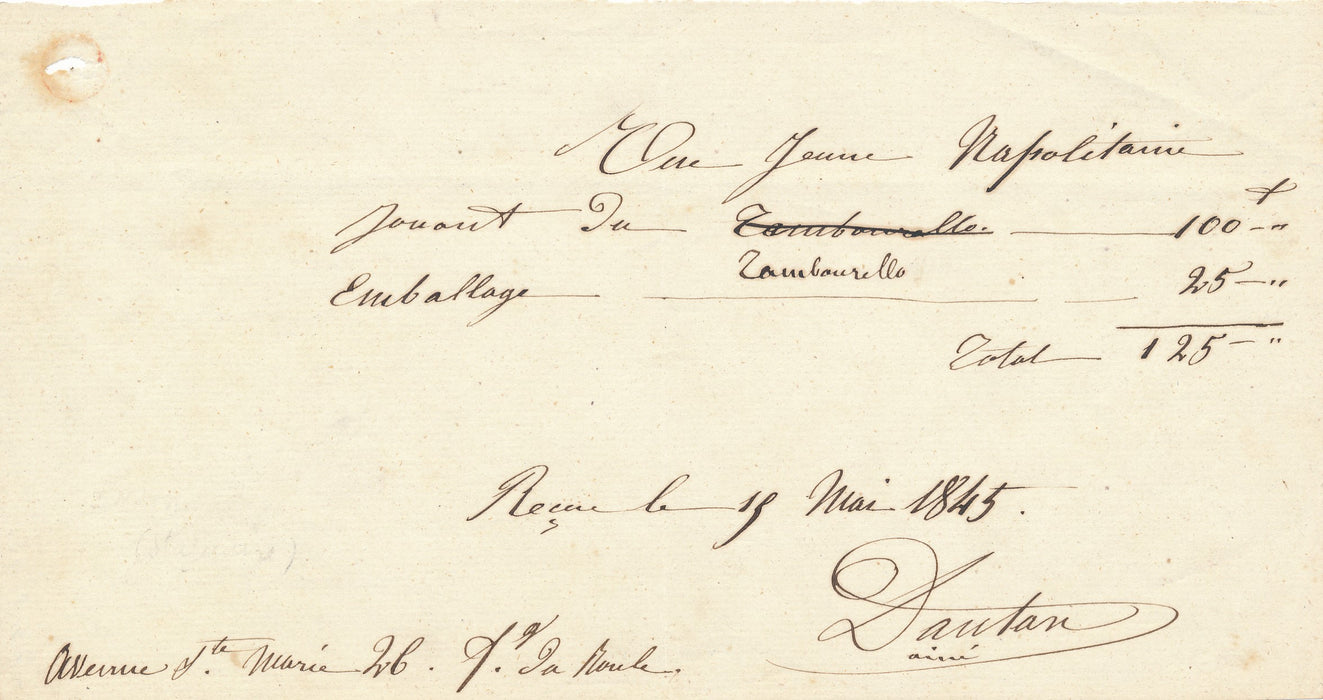 Une Jeune Napolitaine
Jouant Du Tambourello. — 100 — "
Tambourello
Emballage — 25 — "
Total — 125 — "
Reçue le 15 Mai 1845.
Dantan
ainé
Avenue Ste. Marie 26. f.g Du Roule.